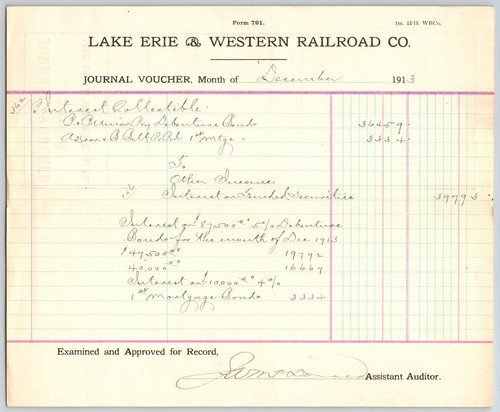 Form 791.
LAKE ERIE & WESTERN RAILROAD CO.
JOURNAL VOUCHER, Month of December 1913
Interest Collectible
P. & P. Union Ry Debenture Bonds 36459
& B. Belt R. Rd. 1st Mtge 3334
To
Other Income
Interest on Funded Securities 39793
Interest on $87,500.00 5% Debenture
Bonds for the month of Dec 1913
$47,500.00 19792
40,000.00 16667
Interest on $10,000.00 4%
1st Mortgage Bonds 3334
Examined and Approved for Record,
Assistant Auditor.